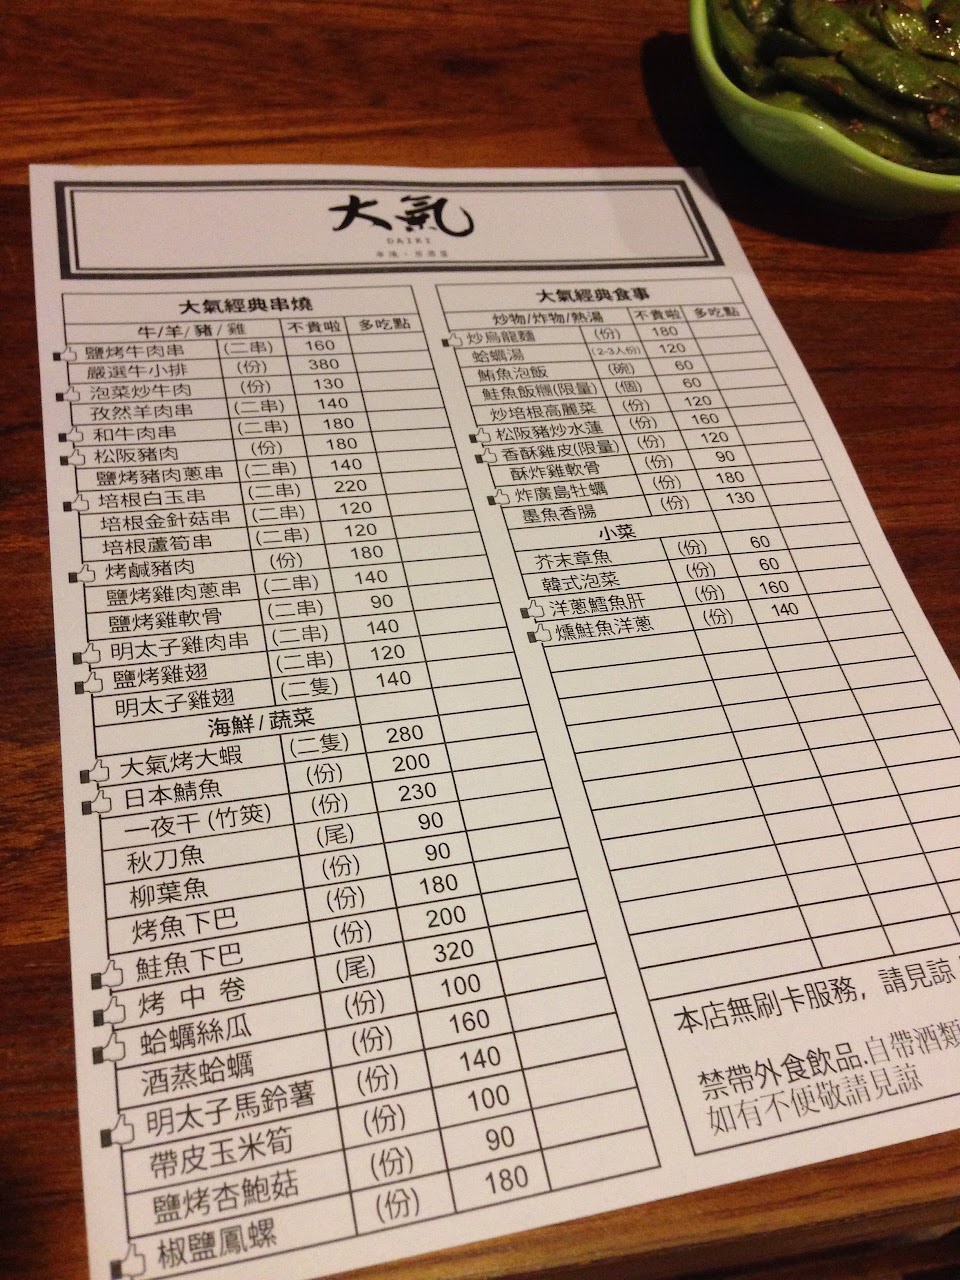 大氣
DAIKI
串燒・居酒屋
大氣經典串燒
牛/羊/豬/雞 不貴啦 多吃點
鹽烤牛肉串 (二串) 160
嚴選牛小排 (份) 380
泡菜炒牛肉 (份) 130
孜然羊肉串 (二串) 140
和牛肉串 (二串) 180
松阪豬肉 (份) 180
鹽烤豬肉蔥串 (二串) 140
培根白玉串 (二串) 220
培根金針菇串 (二串) 120
培根蘆筍串 (二串) 120
烤鹹豬肉 (份) 180
鹽烤雞肉蔥串 (二串) 140
鹽烤雞軟骨 (二串) 90
明太子雞肉串 (二串) 140
鹽烤雞翅 (二串) 120
明太子雞翅 (二隻) 140
海鮮/蔬菜
大氣烤大蝦 (二隻) 280
日本鯖魚 (份) 200
一夜干(竹筴) (份) 230
秋刀魚 (尾) 90
柳葉魚 (份) 90
烤魚下巴 (份) 180
鮭魚下巴 (份) 200
烤 中 卷 (尾) 320
蛤蠣絲瓜 (份) 100
酒蒸蛤蠣 (份) 160
明太子馬鈴薯 (份) 140
帶皮玉米筍 (份) 100
鹽烤杏鮑菇 (份) 90
椒鹽鳳螺 (份) 180
大氣經典食事
炒物/炸物/熱湯 不貴啦 多吃點
炒烏龍麵 (份) 180
蛤蠣湯 (2-3人份) 120
鮪魚泡飯 (碗) 60
鮭魚飯糰(限量) (個) 60
炒培根高麗菜 (份) 120
松阪豬炒水蓮 (份) 160
香酥雞皮(限量) (份) 120
酥炸雞軟骨 (份) 90
炸廣島牡蠣 (份) 180
墨魚香腸 (份) 130
小菜
芥末章魚 (份) 60
韓式泡菜 (份) 60
洋蔥鱈魚肝 (份) 160
燻鮭魚洋蔥 (份) 140
本店無刷卡服務，請見諒
禁帶外食飲品.自帶酒類
如有不便敬請見諒